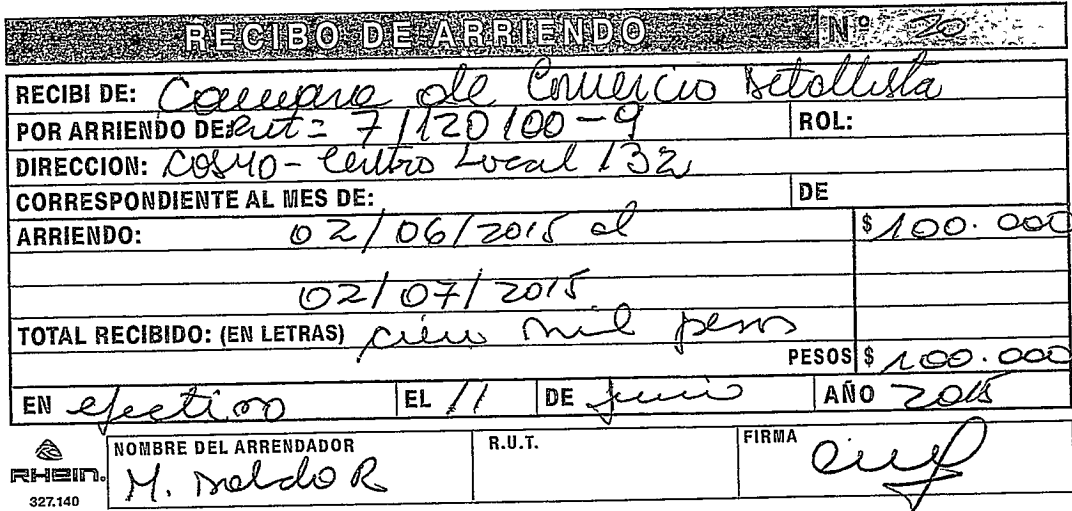 RECIBO DE ARRIENDO Nº 20
RECIBI DE: Camara de Comercio Detallista
POR ARRIENDO DE: Rut= 7/120/00-9 ROL:
DIRECCION: COSMO-Centro Local 132
CORRESPONDIENTE AL MES DE: DE
ARRIENDO: 02/06/2015 al $ 100.000
02/07/2015
TOTAL RECIBIDO: (EN LETRAS) cien mil pesos
PESOS $ 100.000
EN efectivo EL 11 DE junio AÑO 2015
NOMBRE DEL ARRENDADOR R.U.T. FIRMA
RHEIN. M. R
327.140